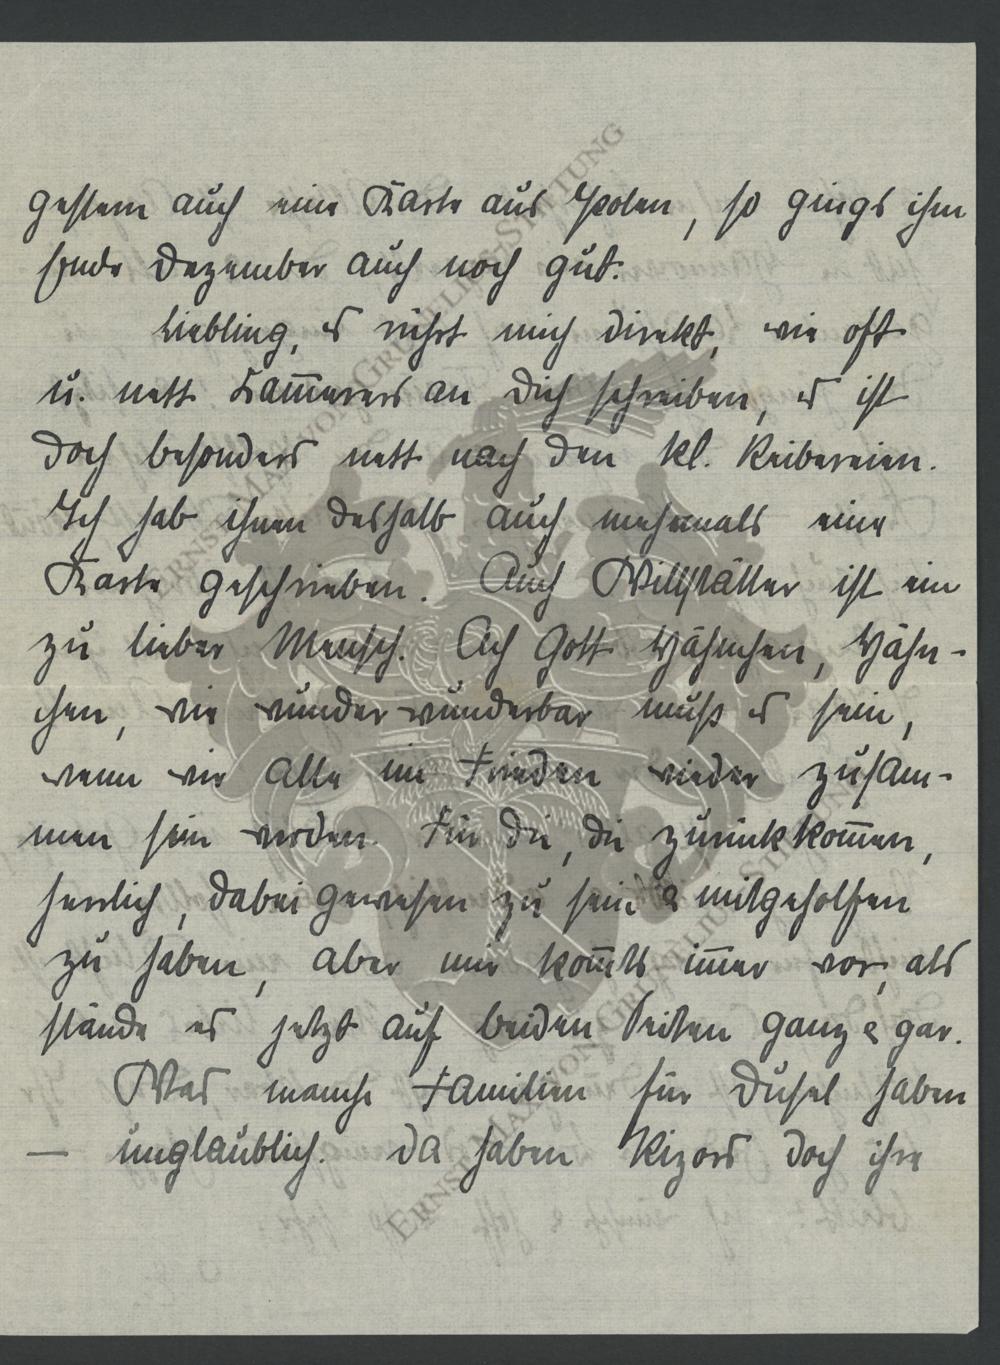 gestern auch eine Karte aus Polen, so gings ihm
Ende Dezember auch noch gut.
Liebling, es rührt mich direkt, wie oft
u. nett Kam̅erers an Dich schreiben, es ist
doch besonders nett nach den kl. Reibereien.
Ich hab ihnen deshalb auch mehrmals eine
Karte geschrieben. Auch Willstätter ist ein
zu lieber Mensch. Ach Gott Hähnchen, Hähn-
chen, wie wunderwunderbar muß es sein,
wenn wir alle im Frieden wieder zusam-
men sein werden. Für die, die zurückkom̅en,
herrlich, dabei gewesen zu sein & mitgeholfen
zu haben, aber mir kom̅ts im̅er vor, als
stände es jetzt auf beiden Seiten ganz & gar.
Was manche Familien für Dusel haben
— unglaublich. Da haben doch ihre
ERNST MAX VON GRUNELIUS-STIFTUNG
ERNST MAX VON GRUNELIUS-STIFTUNG